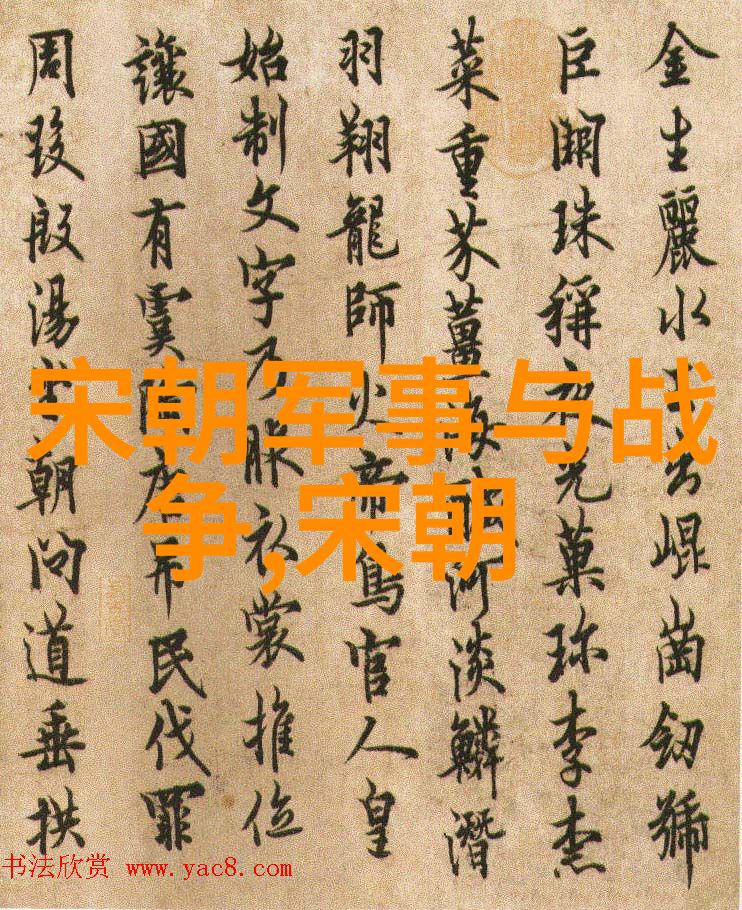 金生麗水玉出崐崗劒號
巨闕珠稱夜光菓珍李柰
菜重芥薑海醎河淡鱗潛
羽翔龍師火帝鳥官人皇
始制文字乃服衣裳推位
讓國有虞陶唐弔民伐罪
周發殷湯坐朝問道垂拱
宋朝军事与战
争,宋朝
书法欣赏 www.yac8.com